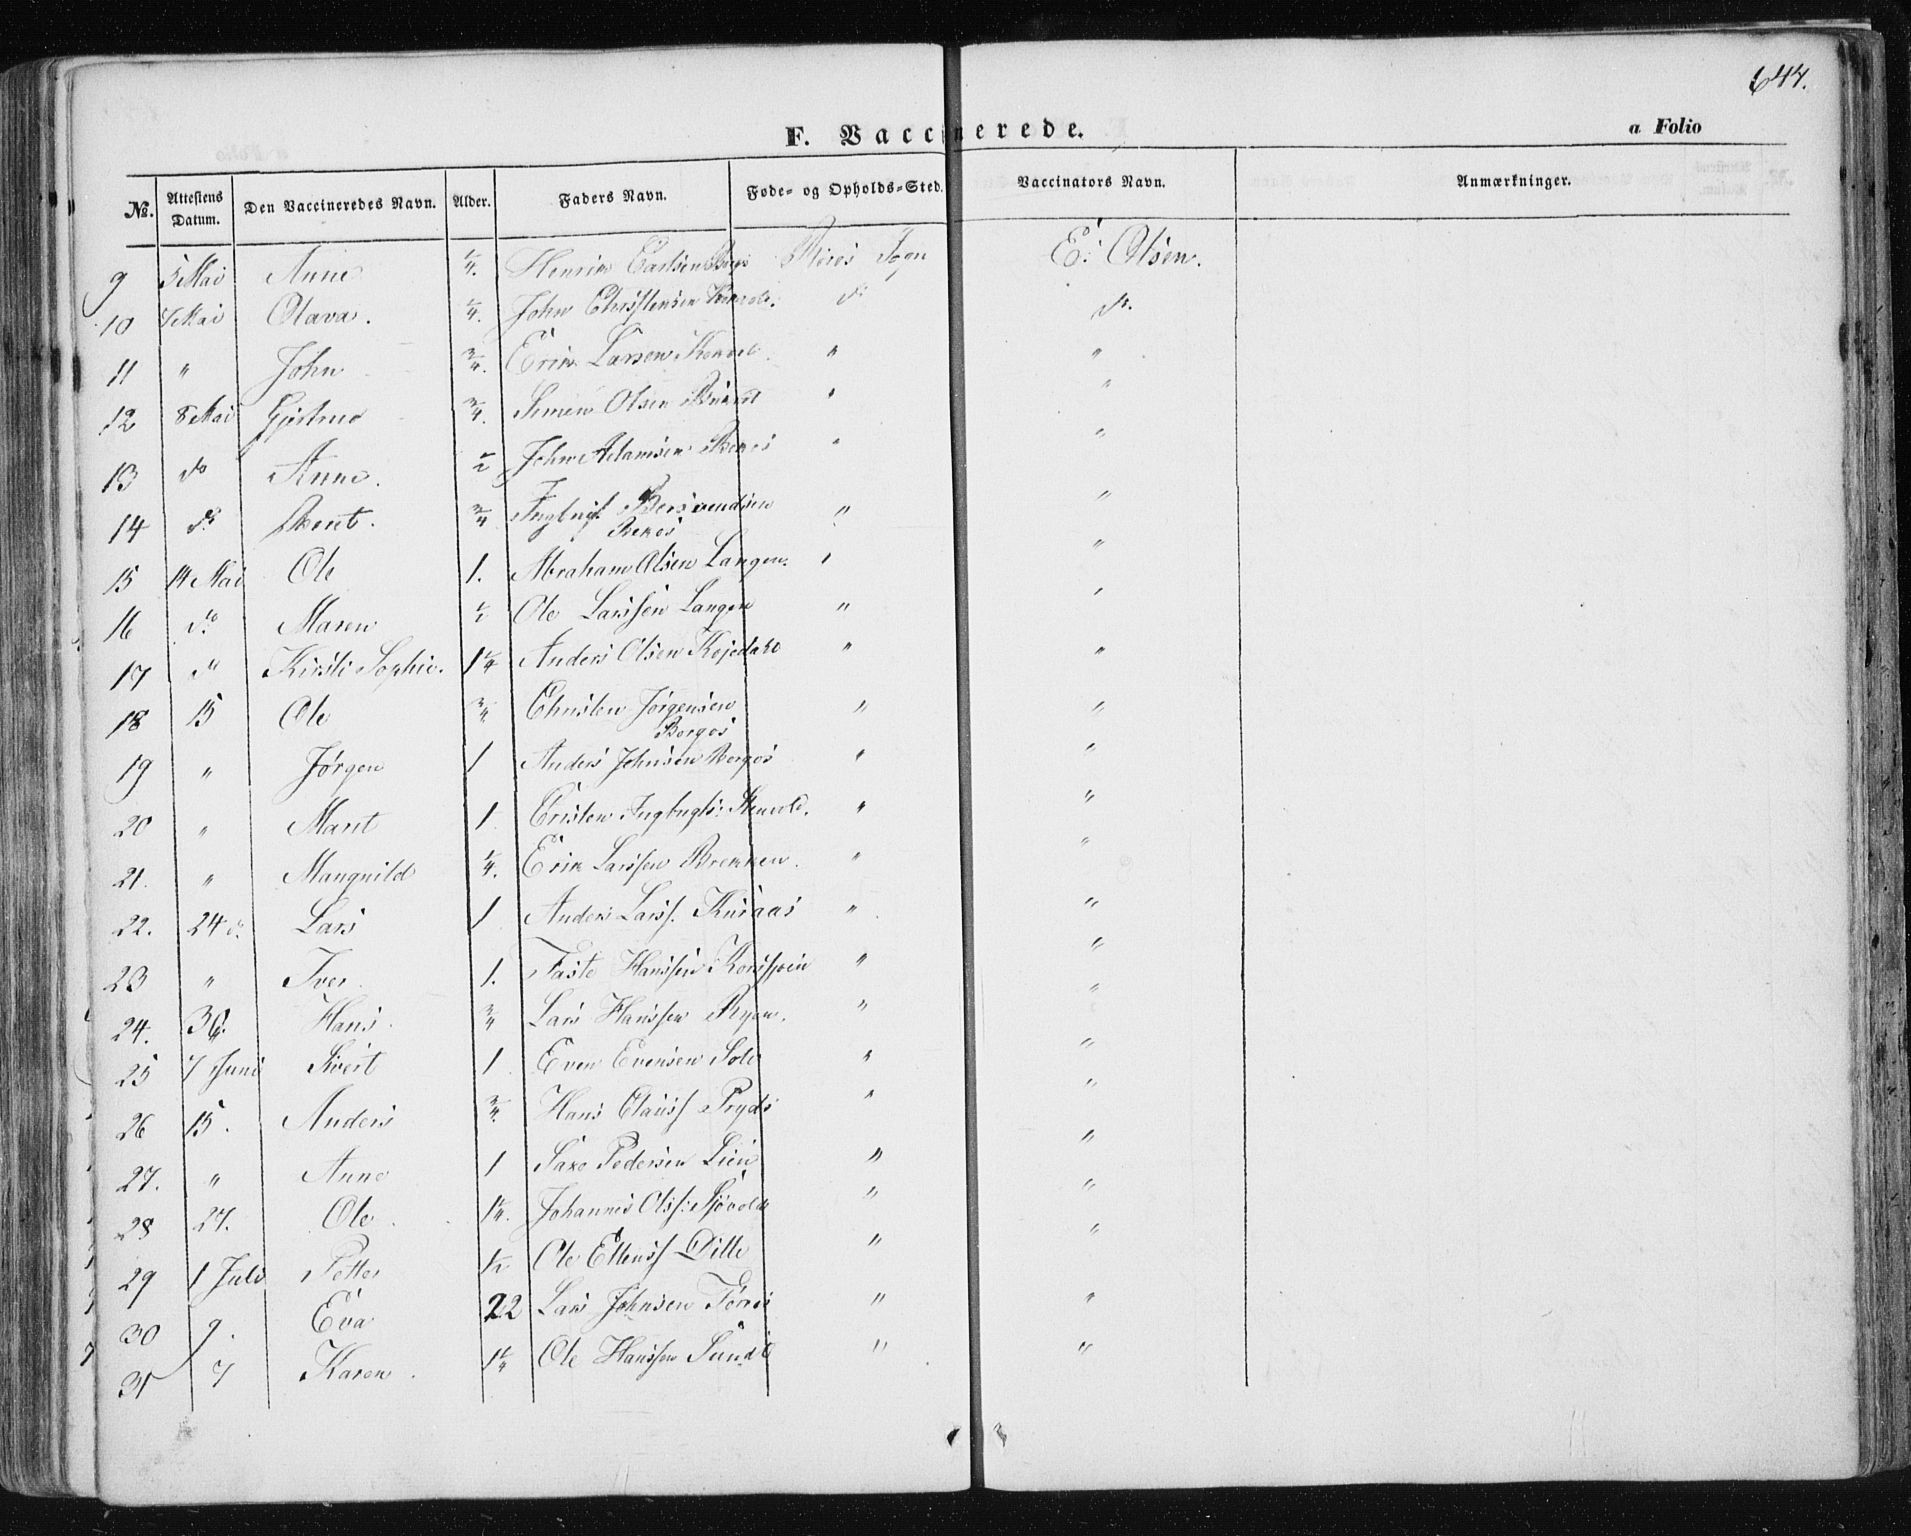 644.
F. Vaccinerede. a Folio
No. Attestens Datum. Den Vaccineredes Navn. Alder. Faders Navn. Føde- og Opholds-Sted. Vaccinators Navn. Anmærkninger.
9 5 Mai Anne 1/4. Henrik Carlsen Røros Sogn E: Olsen.
10 Mai Olava. 1/4. John Christensen do do.
11 " John 3/4. Erik Larsen " "
12 8 Mai 3/4. Simen Olsen " "
13 do Anne. 1/2 John Adamsen " "
14 do Bent. 3/4 Ingbrigt " "
15 14 Mai Ole 1. Abraham Olsen Langen. " "
16 do Maren 1/2 Ole Larssen Langen " "
17 do Kirsti Sophie. 1 1/4 Anders Olsen " "
18 15 Ole 3/4 Christen Jørgensen " "
Borgos
19 " Jørgen 1 Anders Johnsen Borgos " "
20 " Marit 1 " "
21. " 1/4. Erik Larssen Brekken. " "
22. 24 do. Lars 1 Anders Larss. " "
23 " Iver. 1. Faste Hanssen " "
24. 30. Hans. 3/4 Lars Hanssen Ryen. " "
25 7 Juni Sivert 1 Even Evensen " "
26 15. Anders 3/4. Hans Clauss. Pryds " "
27. " Anne 1 Saxe Pedersen Lien " "
28 27. Ole. 1 1/4. Johannes Olss: " "
29 1 Juli Petter 1/2 Ole " "
30 9. Eva 22 Lars Johnsen " "
31 7 Karen. 1 1/4 Ole Hanssen Sundt " "